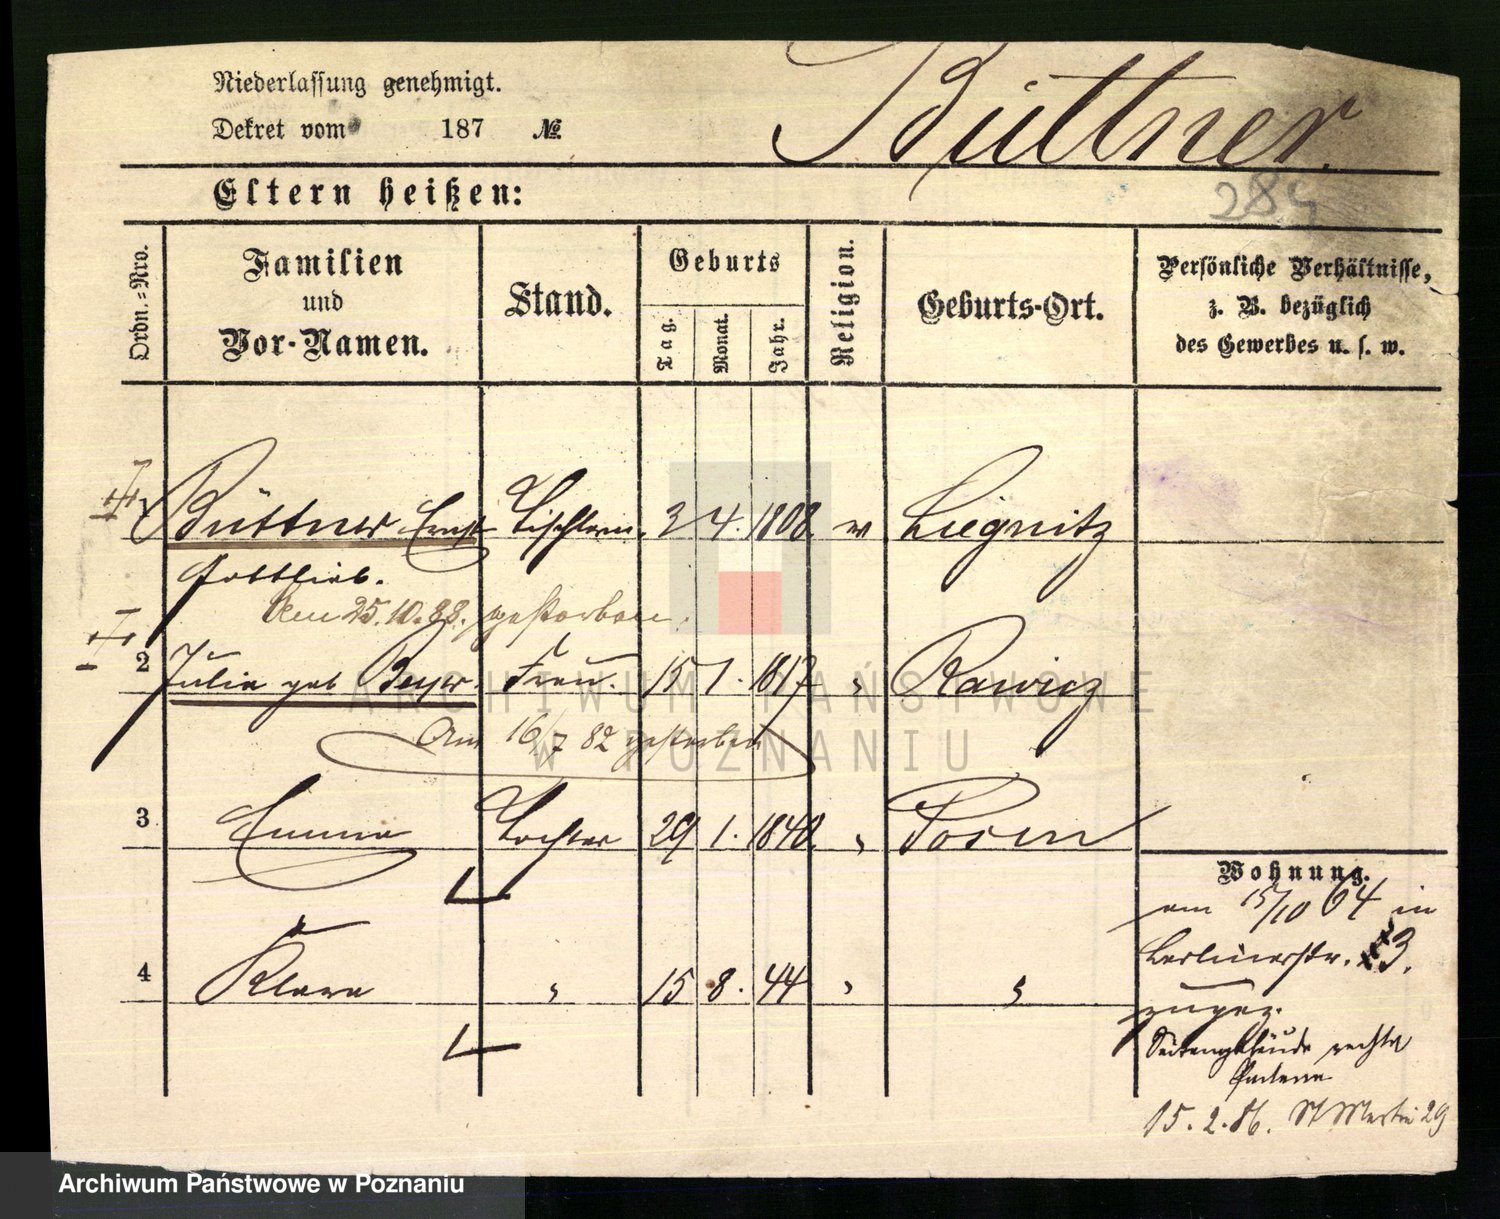 Niederlassung genehmigt.
Dekret vom 187 №.
Büttner.
284
Eltern heißen:
Ordn.=Nro.
Familien
und
Vor-Namen.
Stand.
Geburts
Tag.
Monat.
Jahr.
Religion.
Geburts-Ort.
Persönliche Verhältnisse,
z. B. bezüglich
des Gewerbes u. s. w.
1 Büttner Ernst Tischlerm. 3 4. 1808. Liegnitz
Gottlieb.
Am 25.10.88. gestorben.
2 Julie geb Beyer. Frau. 15 1. 1817 " Rawicz
Am 16/7 82 gestorben
3 Emma Tochter 29 1. 1840. " Posen
4 Klara " 15 8. 44 " "
Wohnung.
am 15/10 64 in
Berlinerstr. 13.
zugez.
Seitengebäude rechts
Parterre
15. 2. 86. St Martin 29
ARCHIWUM PAŃSTWOWE
W POZNANIU
Archiwum Państwowe w Poznaniu